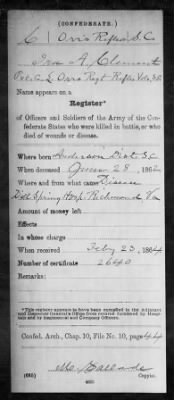 (CONFEDERATE.)
C | 1 Orr's Rifles, S.C.
A. Clement
Pvt. Co. L Orr's Regt Rifles Vols. S.C.
Name appears on a
Register*
of Officers and Soldiers of the Army of the Confederate States who were killed in battle, or who died of wounds or disease.
Where born Anderson Dist. S.C.
When deceased June 28, 1862
Where and from what cause Disease
Spring Hosp. Richmond Va
Amount of money left
Effects
In whose charge
When received Feby 23, 1864
Number of certificate 26640
Remarks:
*This register appears to have been compiled in the Adjutant and Inspector General's Office from records furnished by Hospitals and by Regimental and Company Officers.
Confed. Arch., Chap. 10, File No. 10, page 44
Ballard
(635)
Copyist.